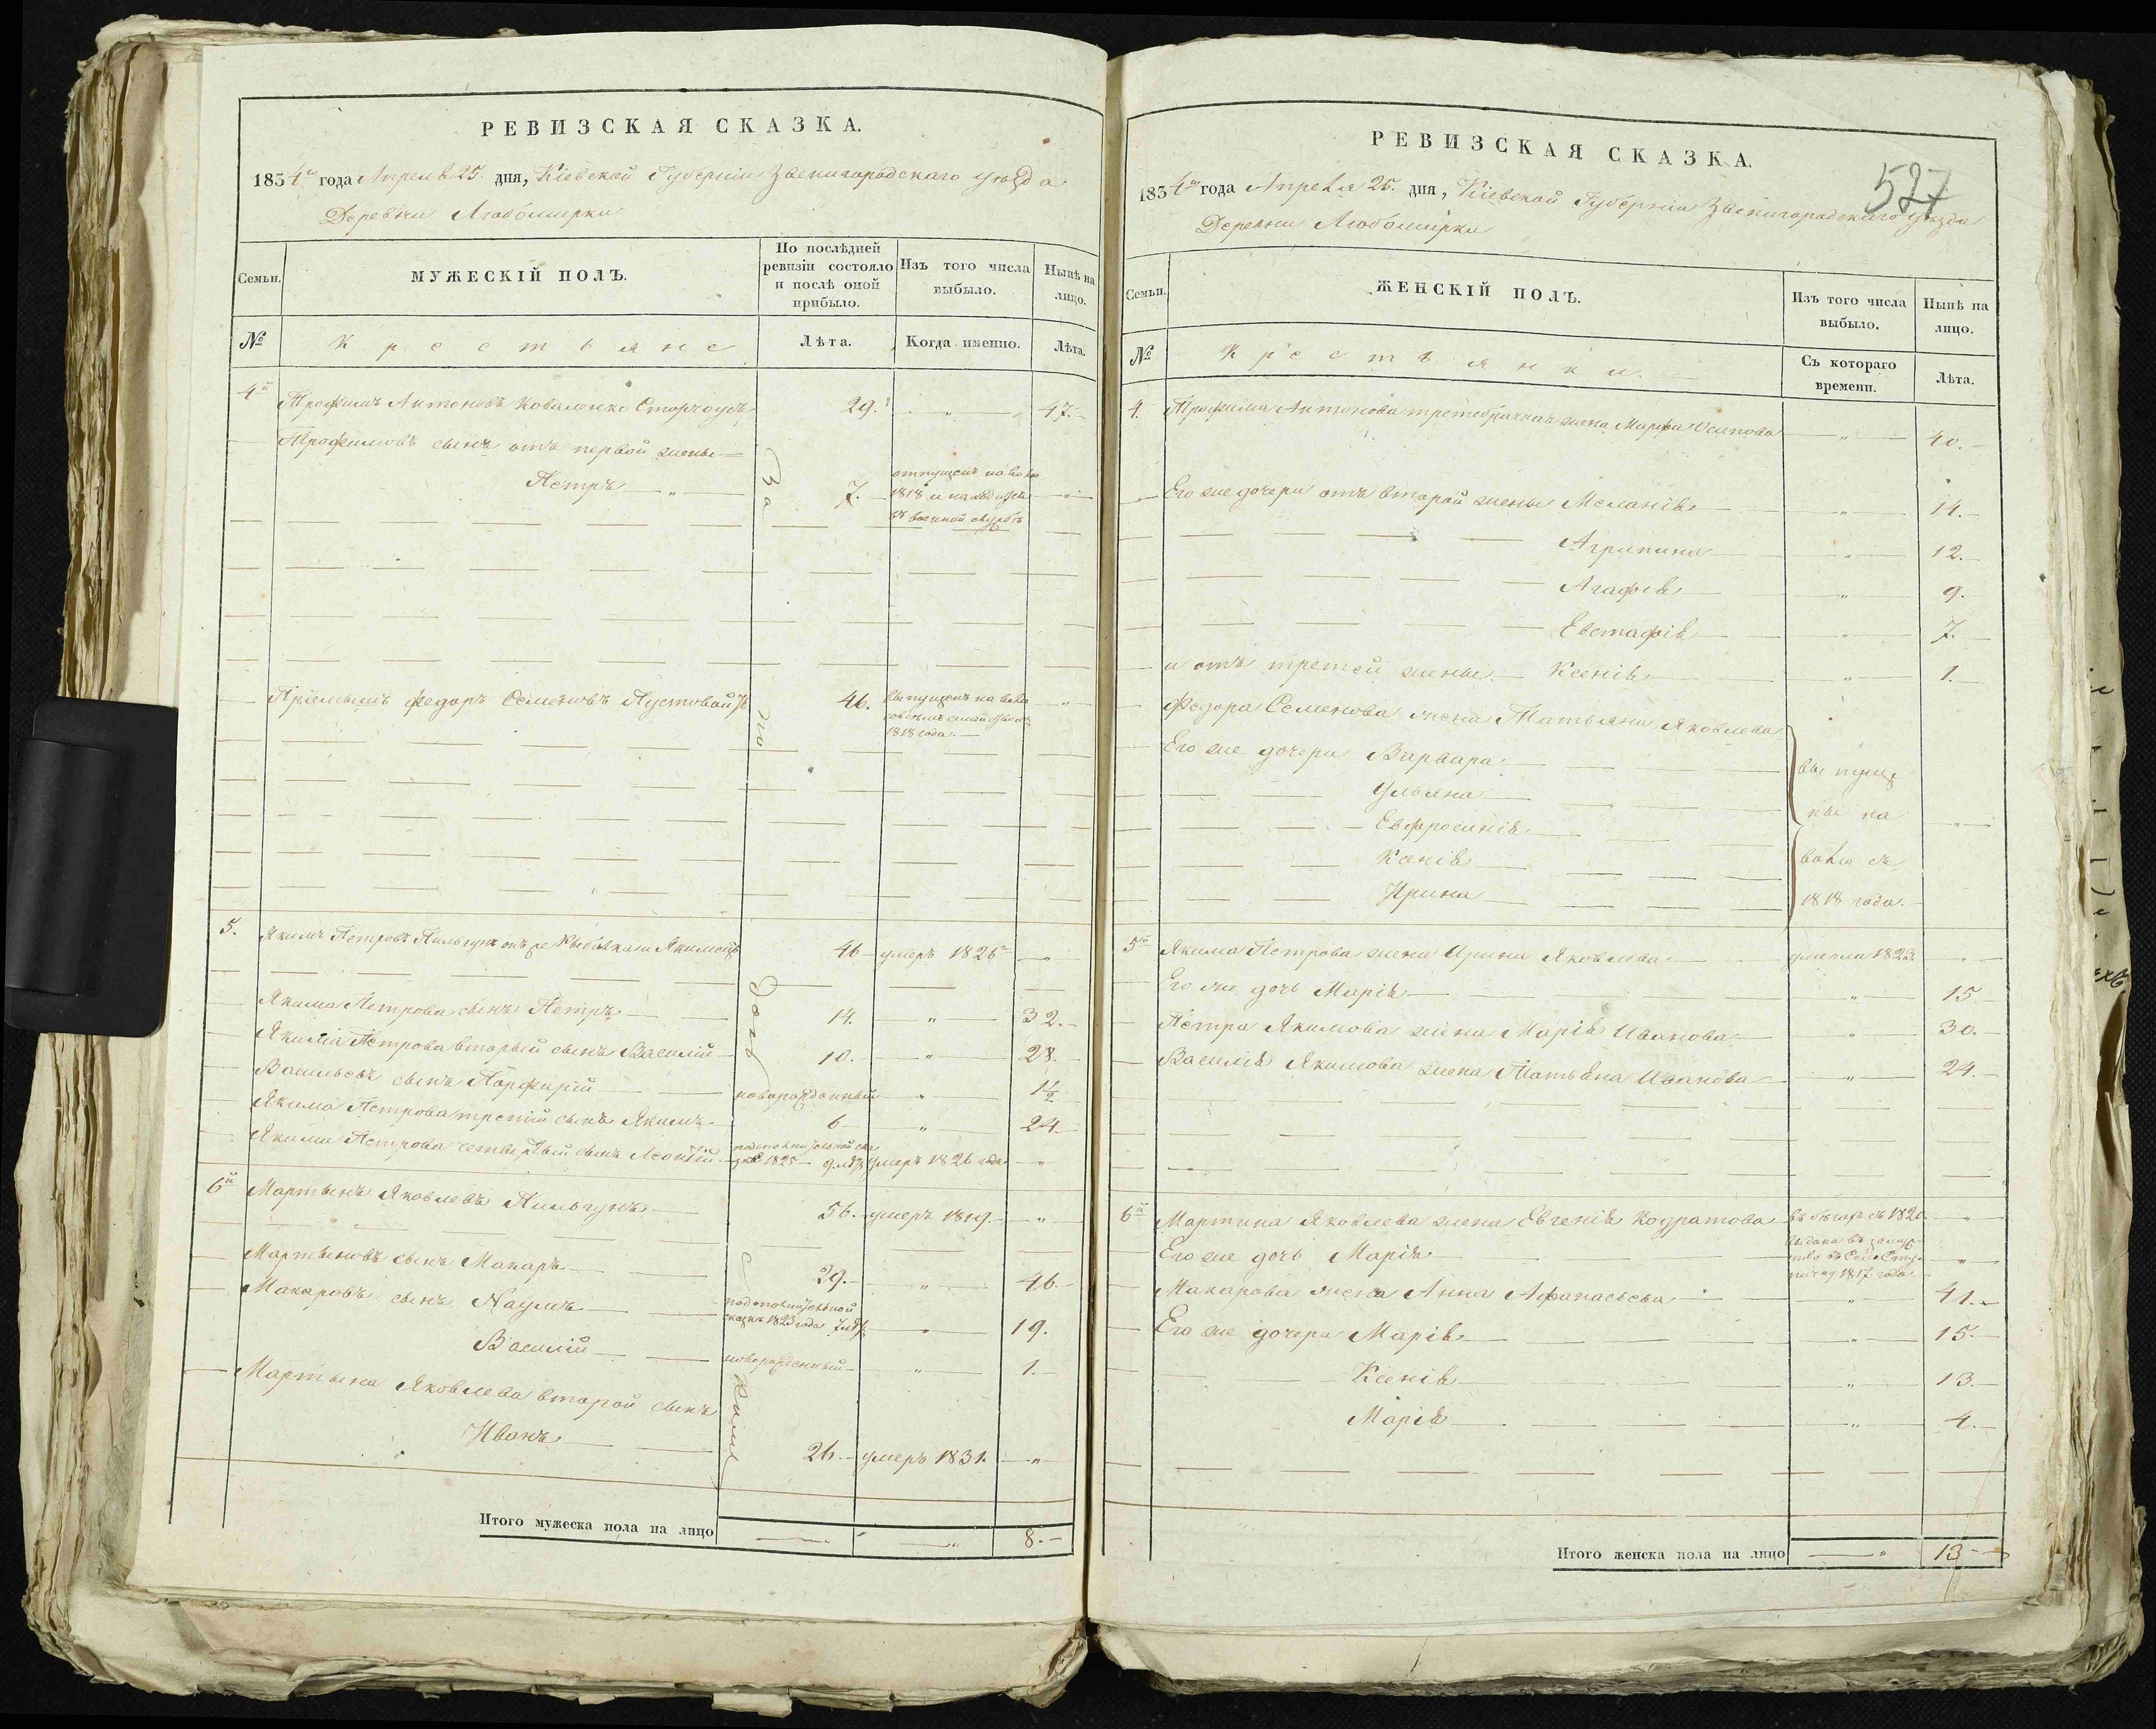 РЕВИЗСКАЯ СКАЗКА.
1834го года Апреля 25. дня, Кіевской Губерніи Звенигородскаго уѣзда
Деревни Любомирки
Семьи.
МУЖЕСКІЙ ПОЛЪ.
По послѣдней ревизіи состояло и послѣ оной прибыло.
Изъ того числа выбыло.
Нынѣ на лицо.
№
Крестьяне
Лѣта.
Когда именно.
Лѣта.
4й Трофимъ Антоновъ Коваленко 29. " 47.
Трофимовъ сынъ отъ первой жены
Петръ " 7. отпущенъ на волю
1818 и находится
въ военной службѣ "
Пріемышъ Федоръ Семеновъ Пустовой 46. выпущенъ на волю
1818 года. "
5. Якимъ Петровъ Пильгунъ 46 умеръ 1826 "
Якима Петрова сынъ Петръ 14. " 32.
Якима Петрова вторый сынъ Василій 10. " 28.
Васильевъ сынъ Порфирій новорожденный " 1½
Якима Петрова третій сынъ Якимъ 6 " 24.
Якима Петрова четвертый сынъ Леонтій 1825 9 умеръ 1826 года "
6й Мартынъ Яковлевъ Пильгунъ 56. умеръ 1819. "
Мартыновъ сынъ Макаръ 29. " 46.
Макаровъ сынъ Наумъ по дополнительной
сказкѣ 1823 года " 19.
Василій новорожденный " 1.
Мартына Яковлева второй сынъ
Иванъ 26. умеръ 1831. "
За
по
доп
Итого мужеска пола на лицо " " 8.
РЕВИЗСКАЯ СКАЗКА.
527
1834го года Апреля 25. дня, Кіевской Губерніи Звенигородскаго уѣзда
Деревни Любомирки
Семьи.
ЖЕНСКІЙ ПОЛЪ.
Изъ того числа выбыло.
Нынѣ на лицо.
№
Крестьянки.
Съ котораго времени.
Лѣта.
4. Трофима Антонова третобрачная жена Марфа Осипова " 40.
Его же дочери отъ второй жены Меланія " 14.
Агрипина " 12.
Агафія " 9.
Евстафія " 7.
и отъ третей жены Ксенія " 1.
Федора Семенова жена Татьяна Яковлева
Его же дочери Варвара
Ульяна
Евфросинія
Ксенія
Ирина
выпуще
ны на
волю съ
1818 года. "
5й Якима Петрова жена Ирина Яковлева умерла 1823. "
Его же дочь Марія " 15
Петра Якимова жена Марія Иванова " 30.
Василія Якимова жена Татьяна Иванова " 24.
6й Мартина Яковлева жена Евгенія Кодратова въ бѣгахъ съ 1820. "
Его же дочь Марія выдана въ замуж-
ство въ Село
1817 года "
Макарова жена Анна Афанасьева " 41.
Его же дочери Марія " 15.
Ксенія " 13.
Марія " 4.
Итого женска пола на лицо " 13